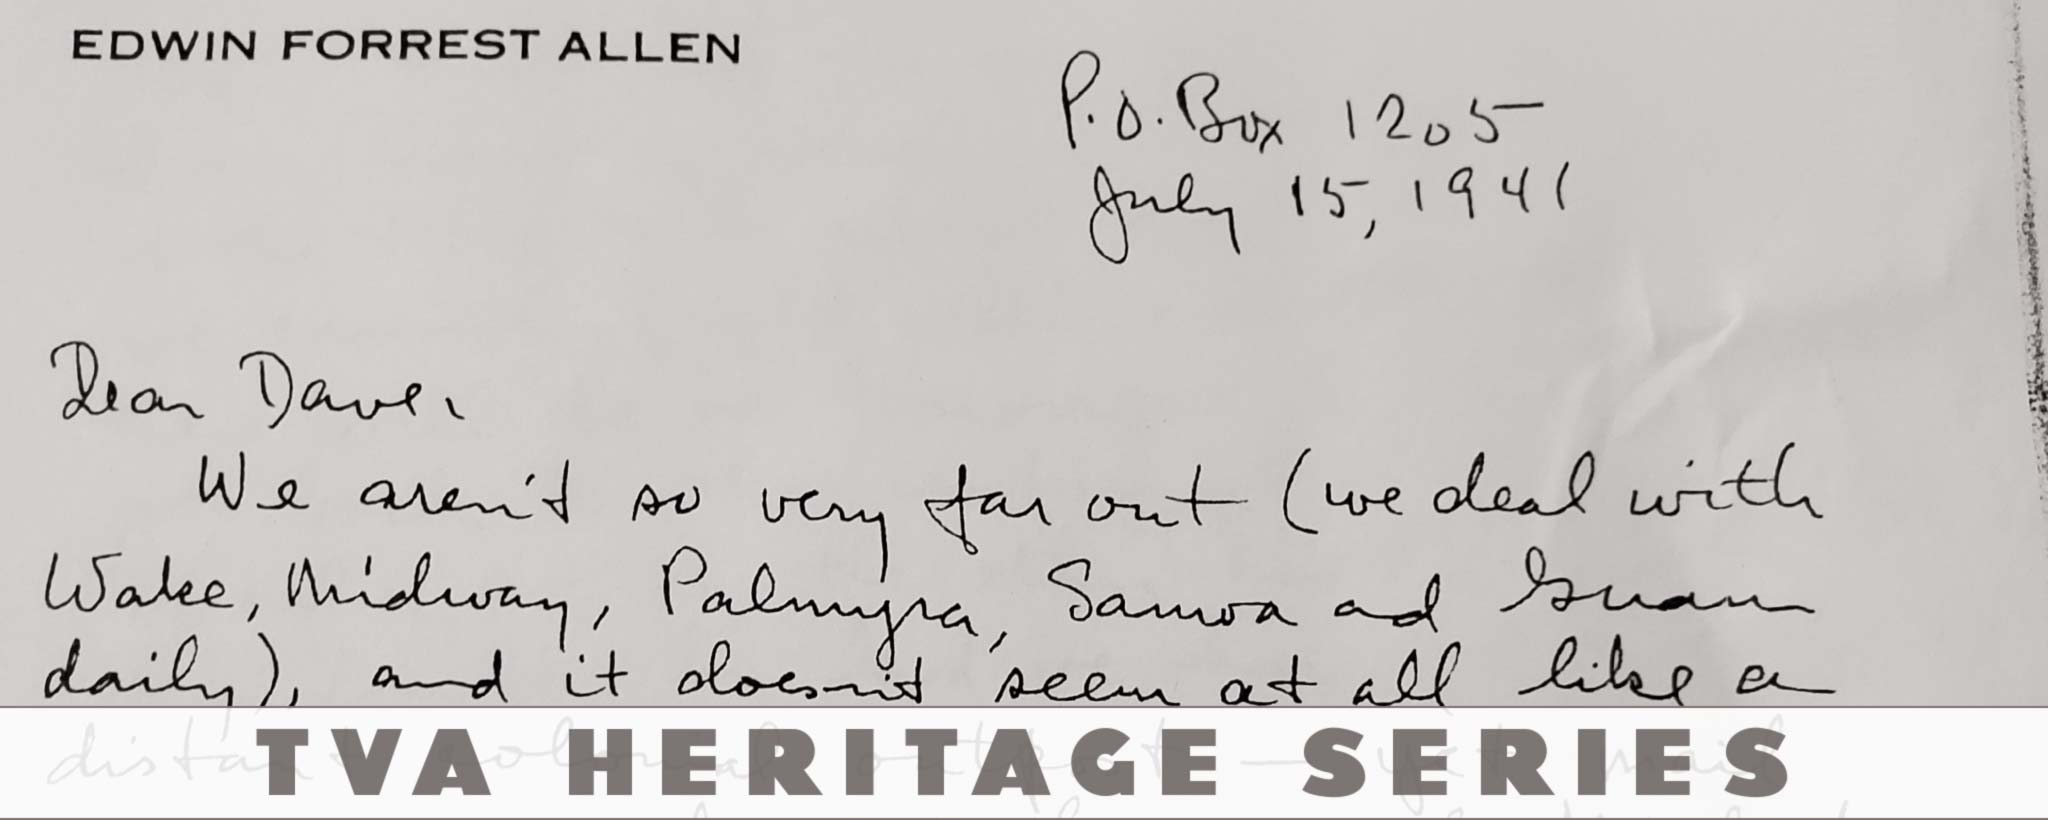 EDWIN FORREST ALLEN
P.O. Box 1205
July 15, 1941
Dear Dave,
We aren't so very far out (we deal with
Wake, Midway, Palmyra, Samoa and Guam
daily), and it doesn't seem at all like a
distant colonial outpost — yet mail
TVA HERITAGE SERIES